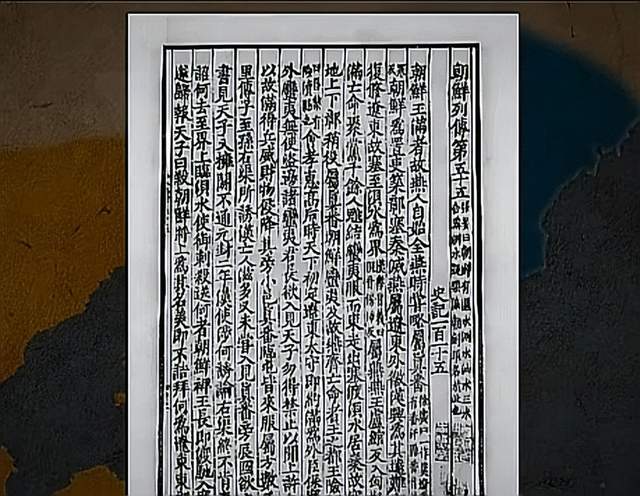 朝鮮列傳第五十五 張晏曰朝鮮有濕水洌水汕水三水合爲洌水疑樂浪朝鮮取名於此也
史記一百十五
朝鮮王滿者故燕人自始全燕時嘗略屬真番
朝鮮爲置吏築鄣塞秦滅燕屬遼東外徼漢興爲其遠難
復修遼東故塞至浿水爲界 屬燕燕王盧綰反入匈
滿亡命聚黨千餘人魋結蠻夷服而東走出塞渡浿水居秦故空
地上下鄣稍役屬真番朝鮮蠻夷及故燕齊亡命者王之都王險
會孝惠高后時天下初定遼東太守即約滿爲外臣保塞
外蠻夷無使盜邊諸蠻夷君長欲入見天子勿得禁止以聞上許
以故滿得兵威財物侵降其旁小邑真番臨屯皆來服屬方數
里傳子至孫右渠所誘漢亡人滋多又未嘗入見真番旁辰國欲
書見天子又擁閼不通元封二年漢使涉何譙諭右渠終不肯
詔何去至界上臨浿水使御刺殺送何者朝鮮裨王長即渡馳入
遂歸報天子曰殺朝鮮將上爲其名美即不詰拜何爲遼東東